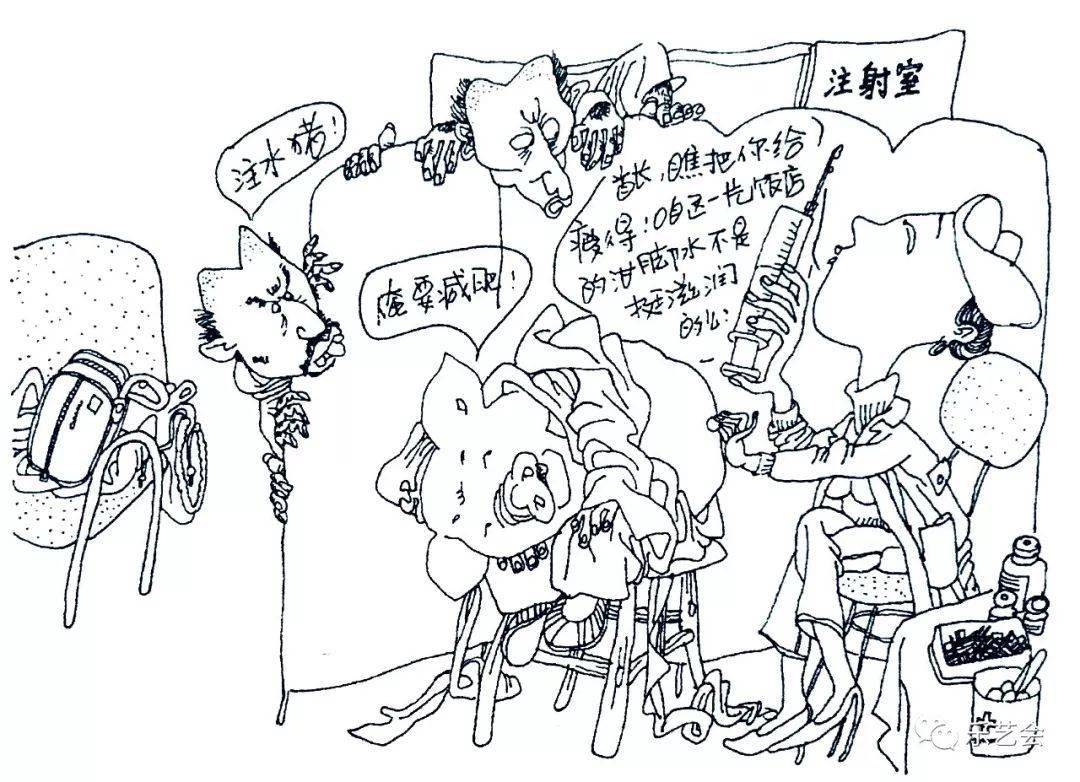 注射室
注水猪!
首长,瞧把你给
瘦得:咱这一片饭店
的泔脚水不是
挺滋润
的么:
俺要减肥!
乐艺会